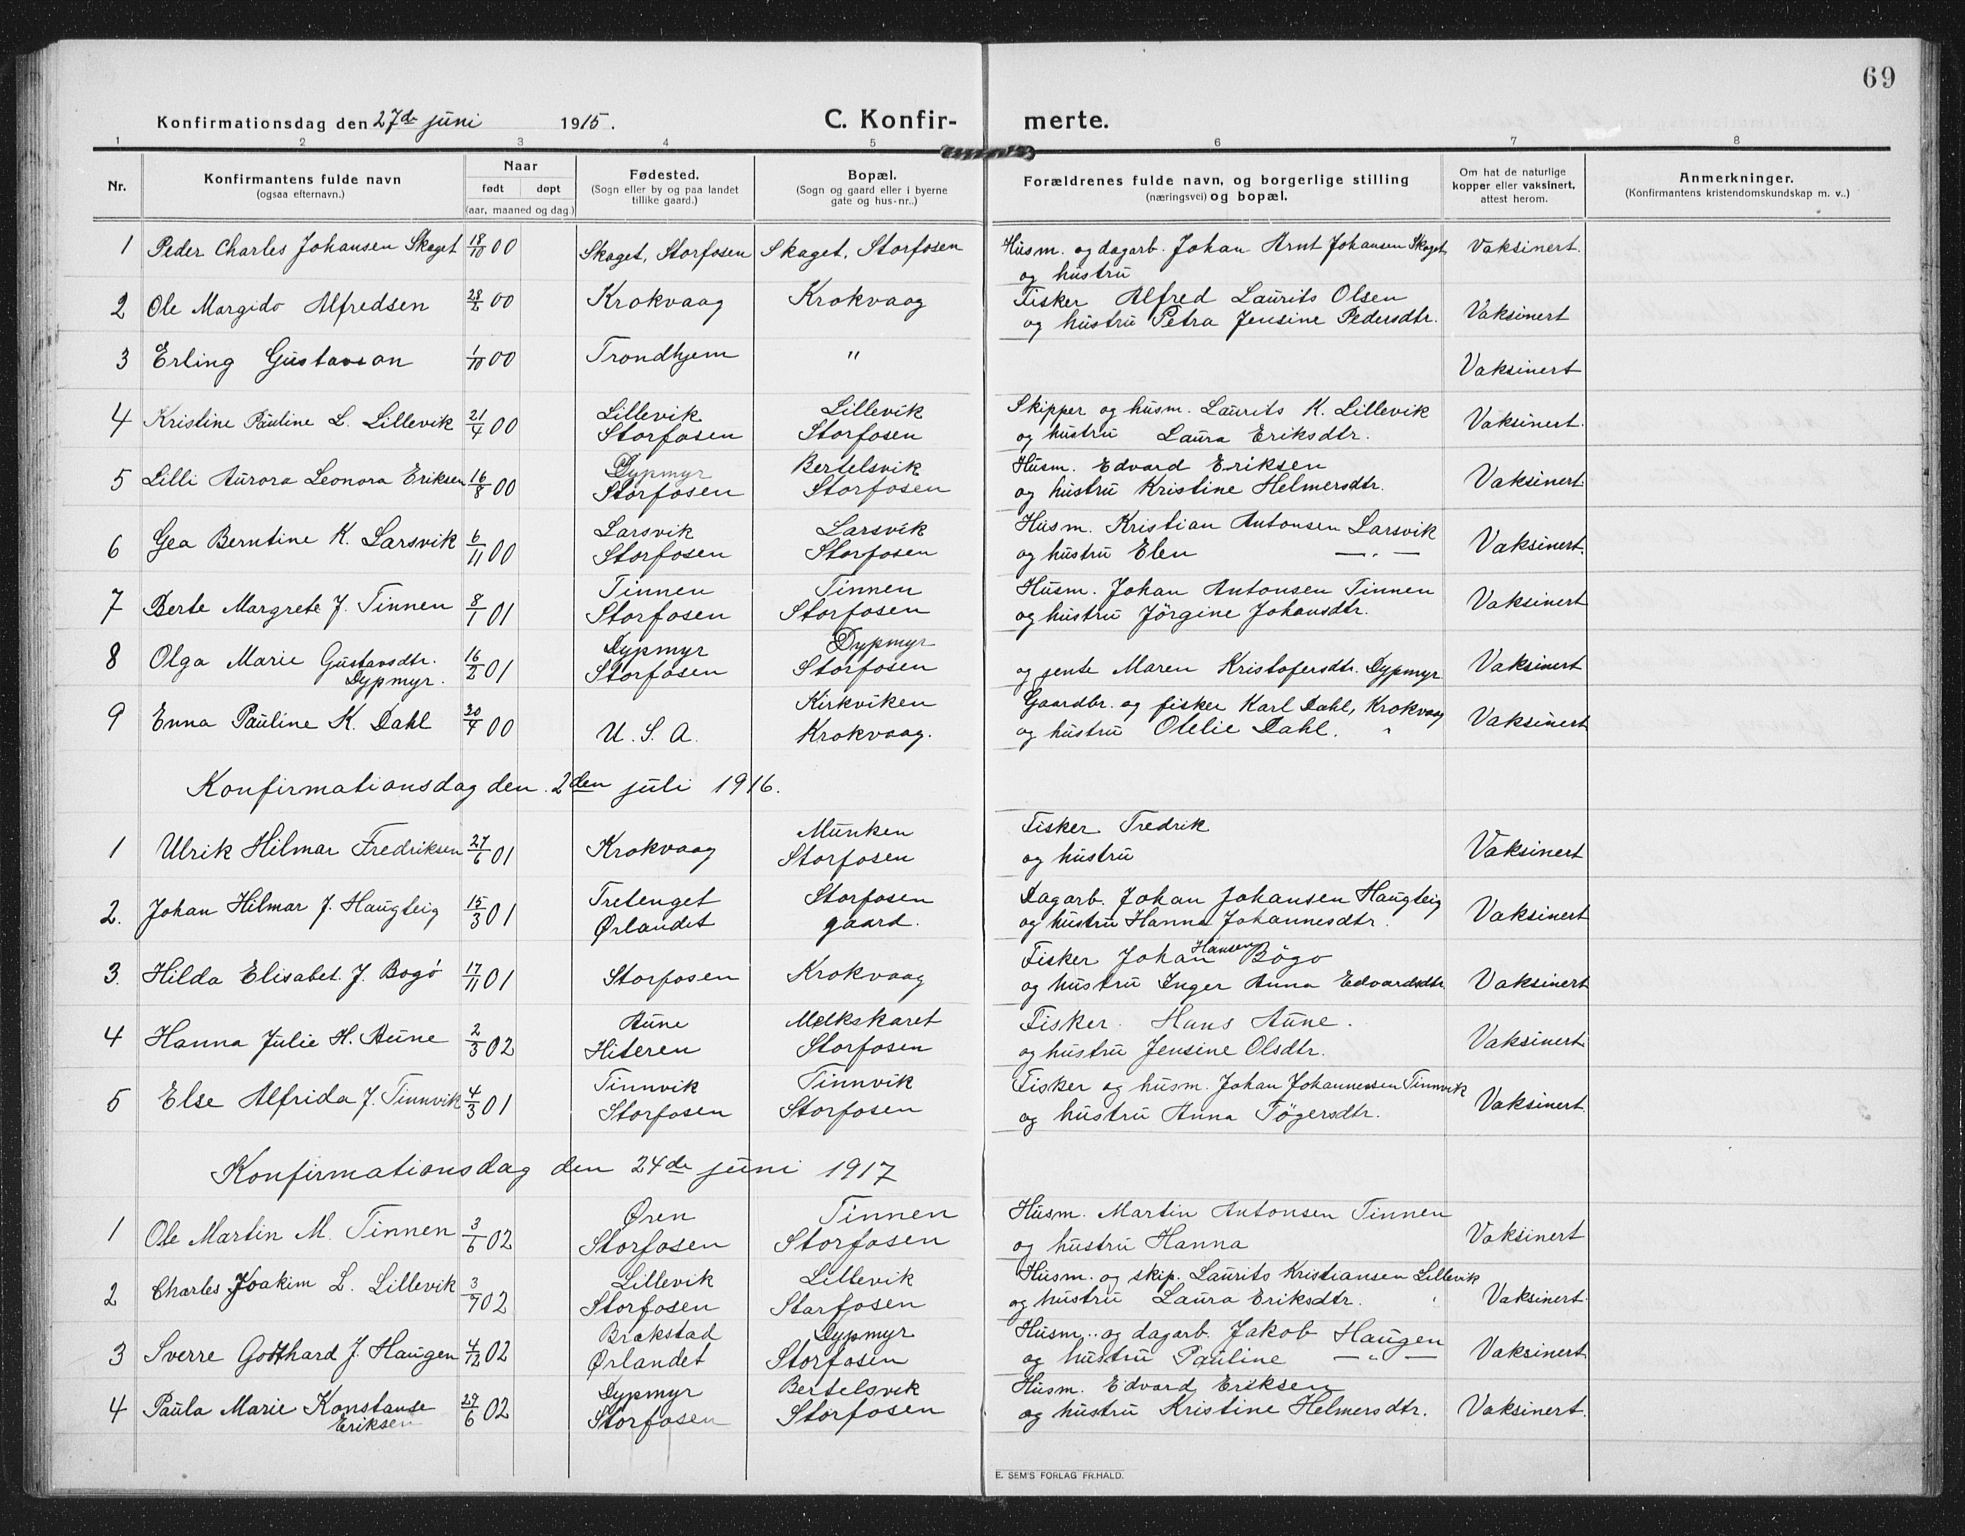 69
Konfirmationsdag den 27de juni 1915. C. Konfirmerte.
1 2 3 4 5 6 7 8
Nr. Konfirmantens fulde navn (ogsaa efternavn). Naar født døpt (aar, maaned og dag.) Fødested. (Sogn eller by og paa landet tillike gaard.) Bopæl. (Sogn og gaard eller i byerne gate og hus-nr.) Forældrenes fulde navn, og borgerlige stilling (næringsvei) og bopæl. Om hat de naturlige kopper eller vaksinert, attest herom. Anmerkninger. (Konfirmantens kristendomskundskap m. v..)
1 Peder Charles Johansen Skaget 18/10 00 Skaget, Storfosen Skaget, Storfosen Husm. og dagarb. Johan Arnt Johansen Skaget Vaksinert.
og hustru
2 Ole Margido Alfredsen 28/2 00 Krokvaag Krokvaag Fisker Alfred Laurits Olsen Vaksinert
og hustru Petra Jensine Pedersdtr.
3 Erling Gustavson 1/10 00 Trondhjem " Vaksinert
4 Kristine Pauline L. Lillevik 21/4 00 Lillevik Lillevik Skipper og husm. Laurits K. Lillevik Vaksinert.
Storfosen Storfosen og hustru Laura Eriksdtr.
5 Lilli Aurora Leonora Eriksen 16/8 00 Dypmyr Bertelsvik Husm. Edvard Eriksen Vaksinert.
Storfosen Storfosen og hustru Kristine Helmersdtr.
6 Gea Berntine K. Larsvik 6/11 00 Larsvik Larsvik Husm. Kristian Antonsen Larsvik Vaksinert.
Storfosen Storfosen og hustru Elen — " —
7 Berte Margrete J. Tinnen 8/1 01 Tinnen Tinnen Husm. Johan Antonsen Tinnen Vaksinert
Storfosen Storfosen og hustru Jörgine Johansdtr.
8 Olga Marie Gustavsdtr. 16/2 01 Dypmyr Dypmyr Vaksinert
Dypmyr. Storfosen Storfosen og jente Maren Kristofersdtr. Dypmyr
9 Enna Pauline K. Dahl 20/4 00 Kirkviken Gaardbr. og fisker Karl Dahl, Krokvaag Vaksinert
U. S. A. Krokvaag. og hustru Olelie Dahl. "
Konfirmationsdag den 2den juli 1916.
1 Ulrik Hilmar Fredriksen 27/6 01 Krokvaag Munken Fisker Fredrik Vaksinert
Storfosen og hustru
2. Johan Hilmar J. Haugteig 15/3 01 Tretenget Storfosen Dagarb. Johan Johansen Haugteig Vaksinert
Ørlandet gaard. og hustru Hanna Johannesdtr.
3. Hilda Elisabet J. Bogö 17/11 01 Storfosen Krokvaag Fisker Johan Hansen Bögo Vaksinert
og hustru Inger Anna Edvardsdtr
4 Hanna Julie H. Aune 2/3 02 Aune Melkskaret Fisker. Hans Aune. Vaksinert.
Hiteren Storfosen og hustru Jensine Olsdtr.
5 Else Alfrida J. Tinnvik 4/3 01 Tinnvik Tinnvik Fisker og husm. Johan Johannessen Tinnvik Vaksinert.
Storfosen Storfosen og hustru Anna Tögersdtr.
Konfirmationsdag den 24de juni 1917
1 Ole Martin M. Tinnen 3/6 02 Øren Tinnen Husm. Martin Antonsen Tinnen Vaksinert
Storfosen Storfosen og hustru Hanna
2 Charles Joakim L. Lillevik 3/7 02 Lillevik Lillevik Husm. og skip. Laurits Kristiansen Lillevik Vaksinert.
Storfosen Storfosen og hustru Laura Eriksdtr. "
3 Sverre Gotthard J. Haugen 4/12 02 Brækstad Dypmyr Husm. og dagarb. Jakob Haugen Vaksinert.
Ørlandet Storfosen og hustru Pauline — " —
4 Paula Marie Konstanse 29/6 02 Dypmyr Bertelsvik Husm. Edvard Eriksen Vaksinert.
Eriksen Storfosen Storfosen og hustru Kristine Helmersdtr.
E. SEM'S FORLAG FR.HALD.